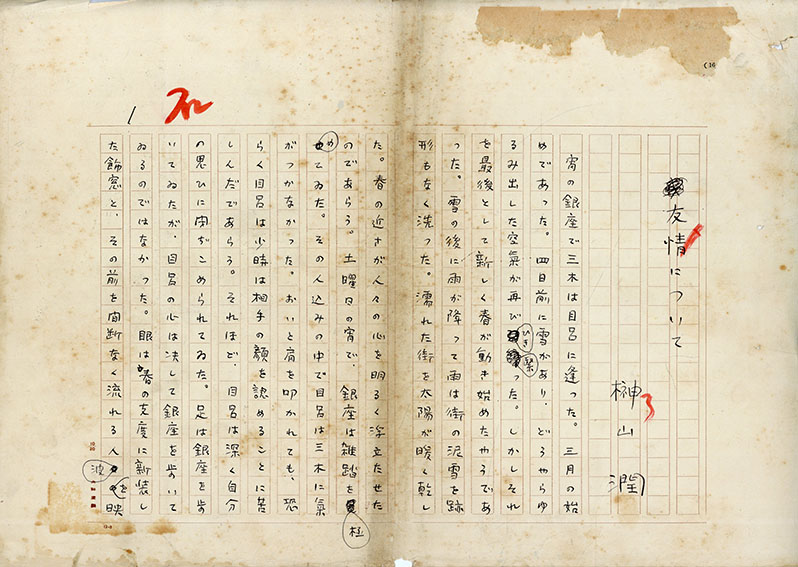 友情について
榊山潤
宵の銀座で三木は目呂に逢った。三月の始
めであった。四日前に雪があり、どうやらゆ
るみ出した空氣が再びひき緊った。しかしそれ
を最後として新しく春が動き始めたやうであ
った。雪の後に雨が降って雨は街の泥雪を跡
形もなく洗った。濡れた街を太陽が暖く乾し
た。春の近さが人々の心を明るく浮立たせた
のであらう。土曜日の宵で、銀座は雑踏を極
めてゐた。その人込みの中で目呂は三木に氣
がつかなかった。おいと肩を叩かれても、恐
らく目呂は少時は相手の顔を認めることに苦
しんだであらう。それほど、目呂は深く自分
の思ひに閉ぢこめられてゐた。足は銀座を歩
いてゐたが、目呂の心は決して銀座を歩いて
ゐるのではなかった。眼は春の支度に新装し
た飾窓と、その前を間断なく流れる人波を映
1